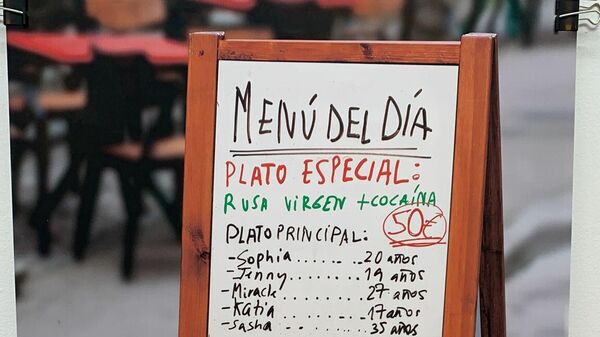 MENÚ DEL DÍA
PLATO ESPECIAL:
RUSA VIRGEN + COCAÍNA
50€
PLATO PRINCIPAL:
- Sophia........ 20 años
- Jenny......... 19 años
- Miracle........ 27 años
- Katia......... 17 años
- Sasha ........ 35 años